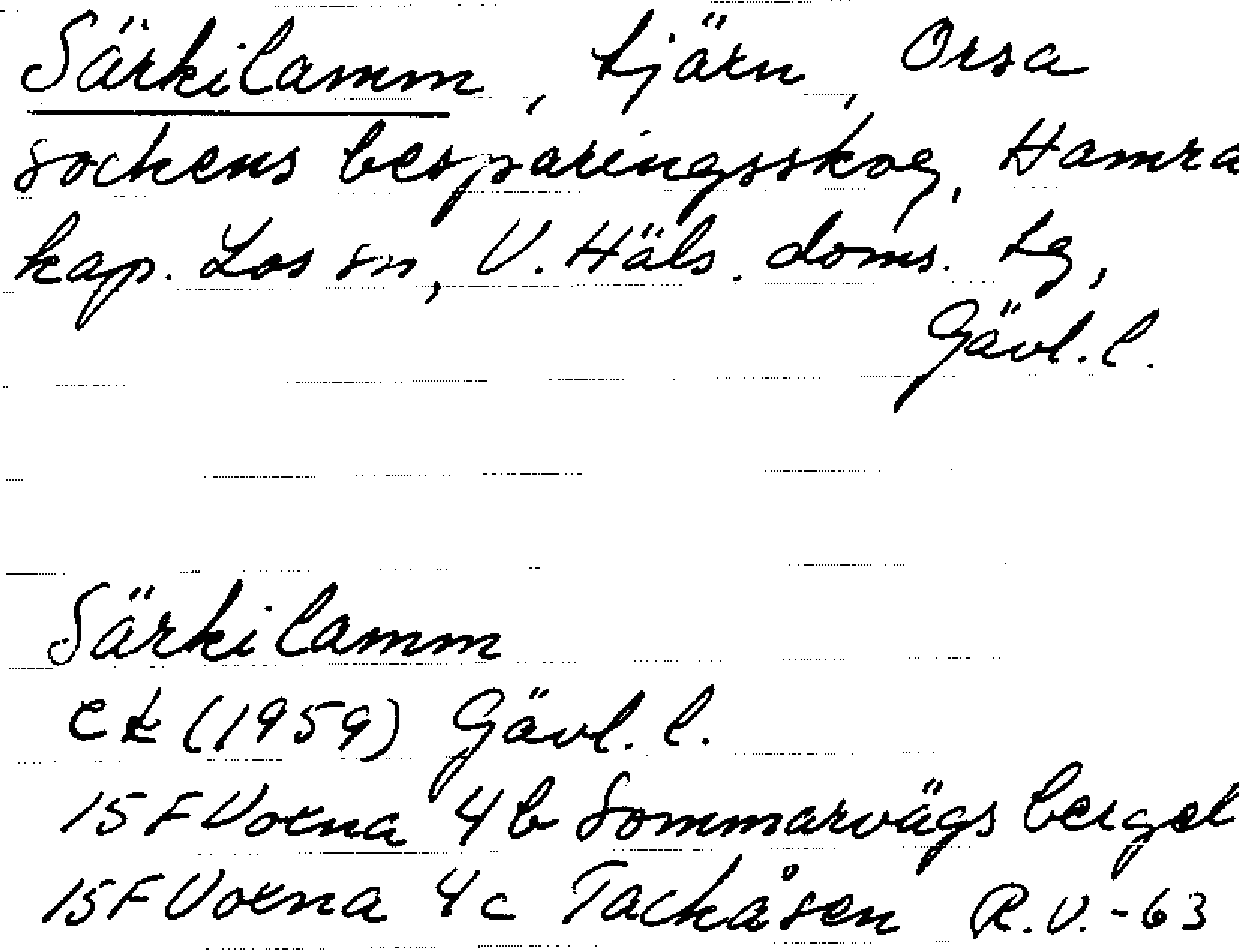 Särkilamm, tjärn, Orsa
sockens besparingsskog, Hamra
kap. Los sn, V. Häls. doms. tg,
Gävl. l.
Särkilamm
ek (1959) Gävl. l.
15F Voxna 4b Sommarvägsberget
15F Voxna 4c Tackåsen R.V.-63